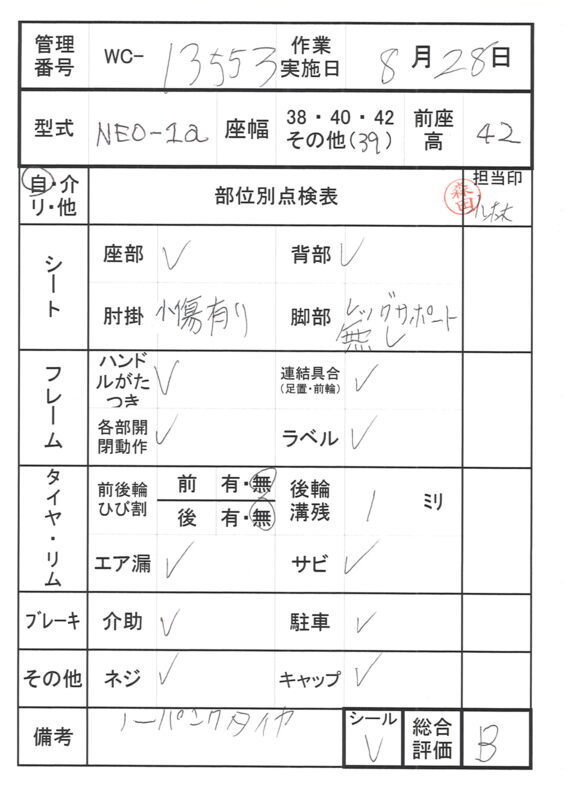 管理番号 WC-13553 作業実施日 8月28日
型式 NEO-1a 座幅 38・40・42 その他(39) 前座高 42
自・介 リ・他 部位別点検表 森田 担当印
シート 座部 ✓ 背部 ✓
肘掛 小傷有り 脚部 レッグサポート無し
フレーム ハンドルがたつき ✓ 連結具合(足置・前輪) ✓
各部開閉動作 ✓ ラベル ✓
タイヤ・リム 前後輪ひび割 前 有・無 後輪溝残 1 ミリ
後 有・無
エア漏 ✓ サビ ✓
ブレーキ 介助 ✓ 駐車 ✓
その他 ネジ ✓ キャップ ✓
備考 ノーパンクタイヤ シール ✓ 総合評価 B